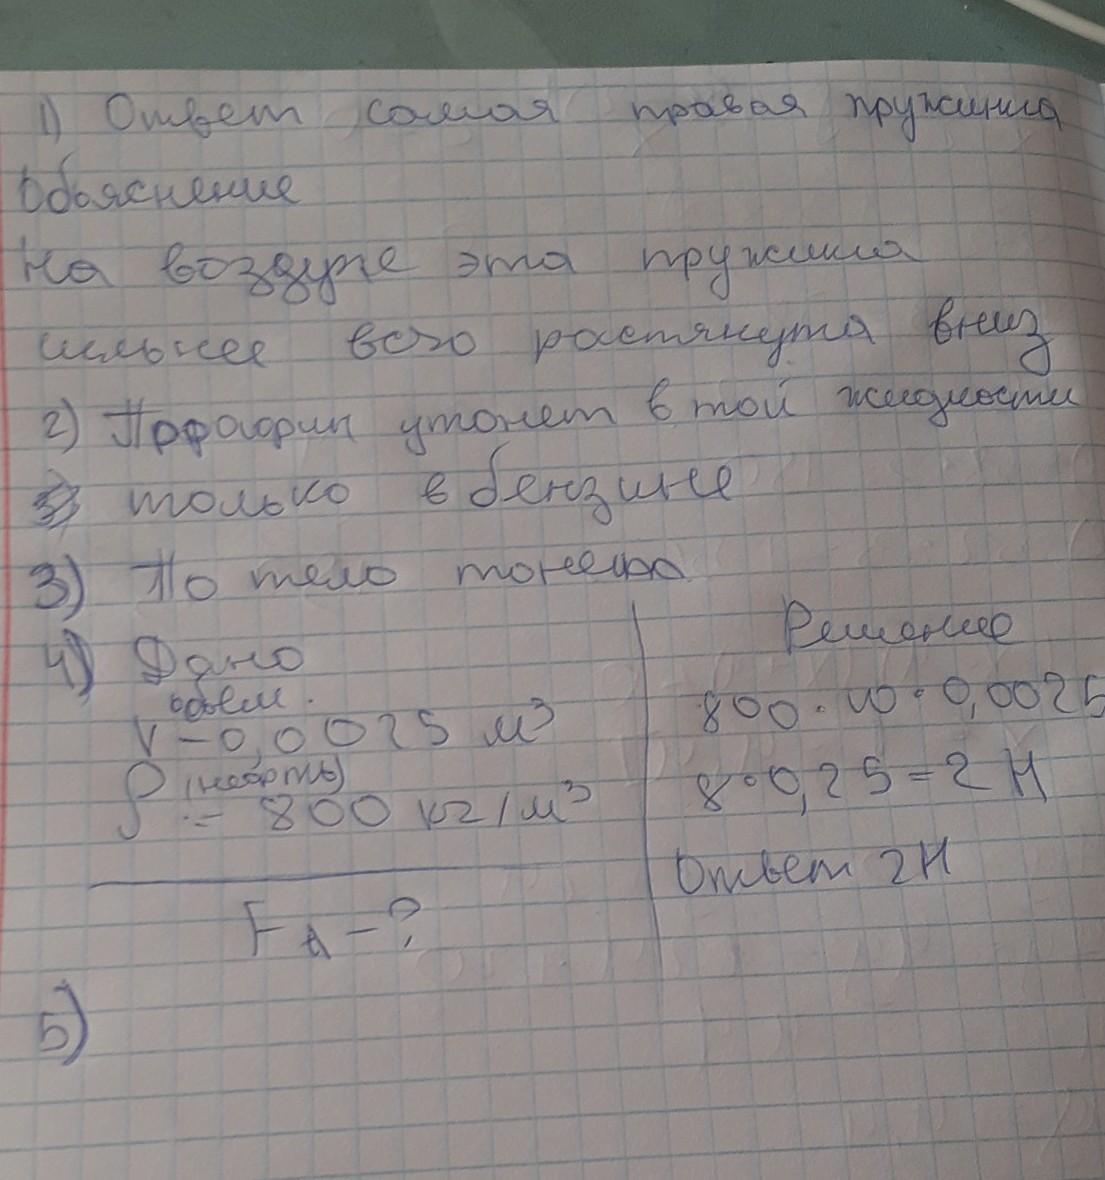 1) Ответ самая правая пружина
Обьяснение
На воздухе эта пружина
сильнее всего растянута вниз
2) Парафин утонет в той жидкости
только в бензине
3) То тело тонет
4) Дано
обьем.
V - 0,0025 м³
ρ (нефрты)
= 800 кг/м³
FА - ?
Решение
800 · 10 · 0,0025
8 · 0,25 = 2 Н
Ответ 2Н
5)